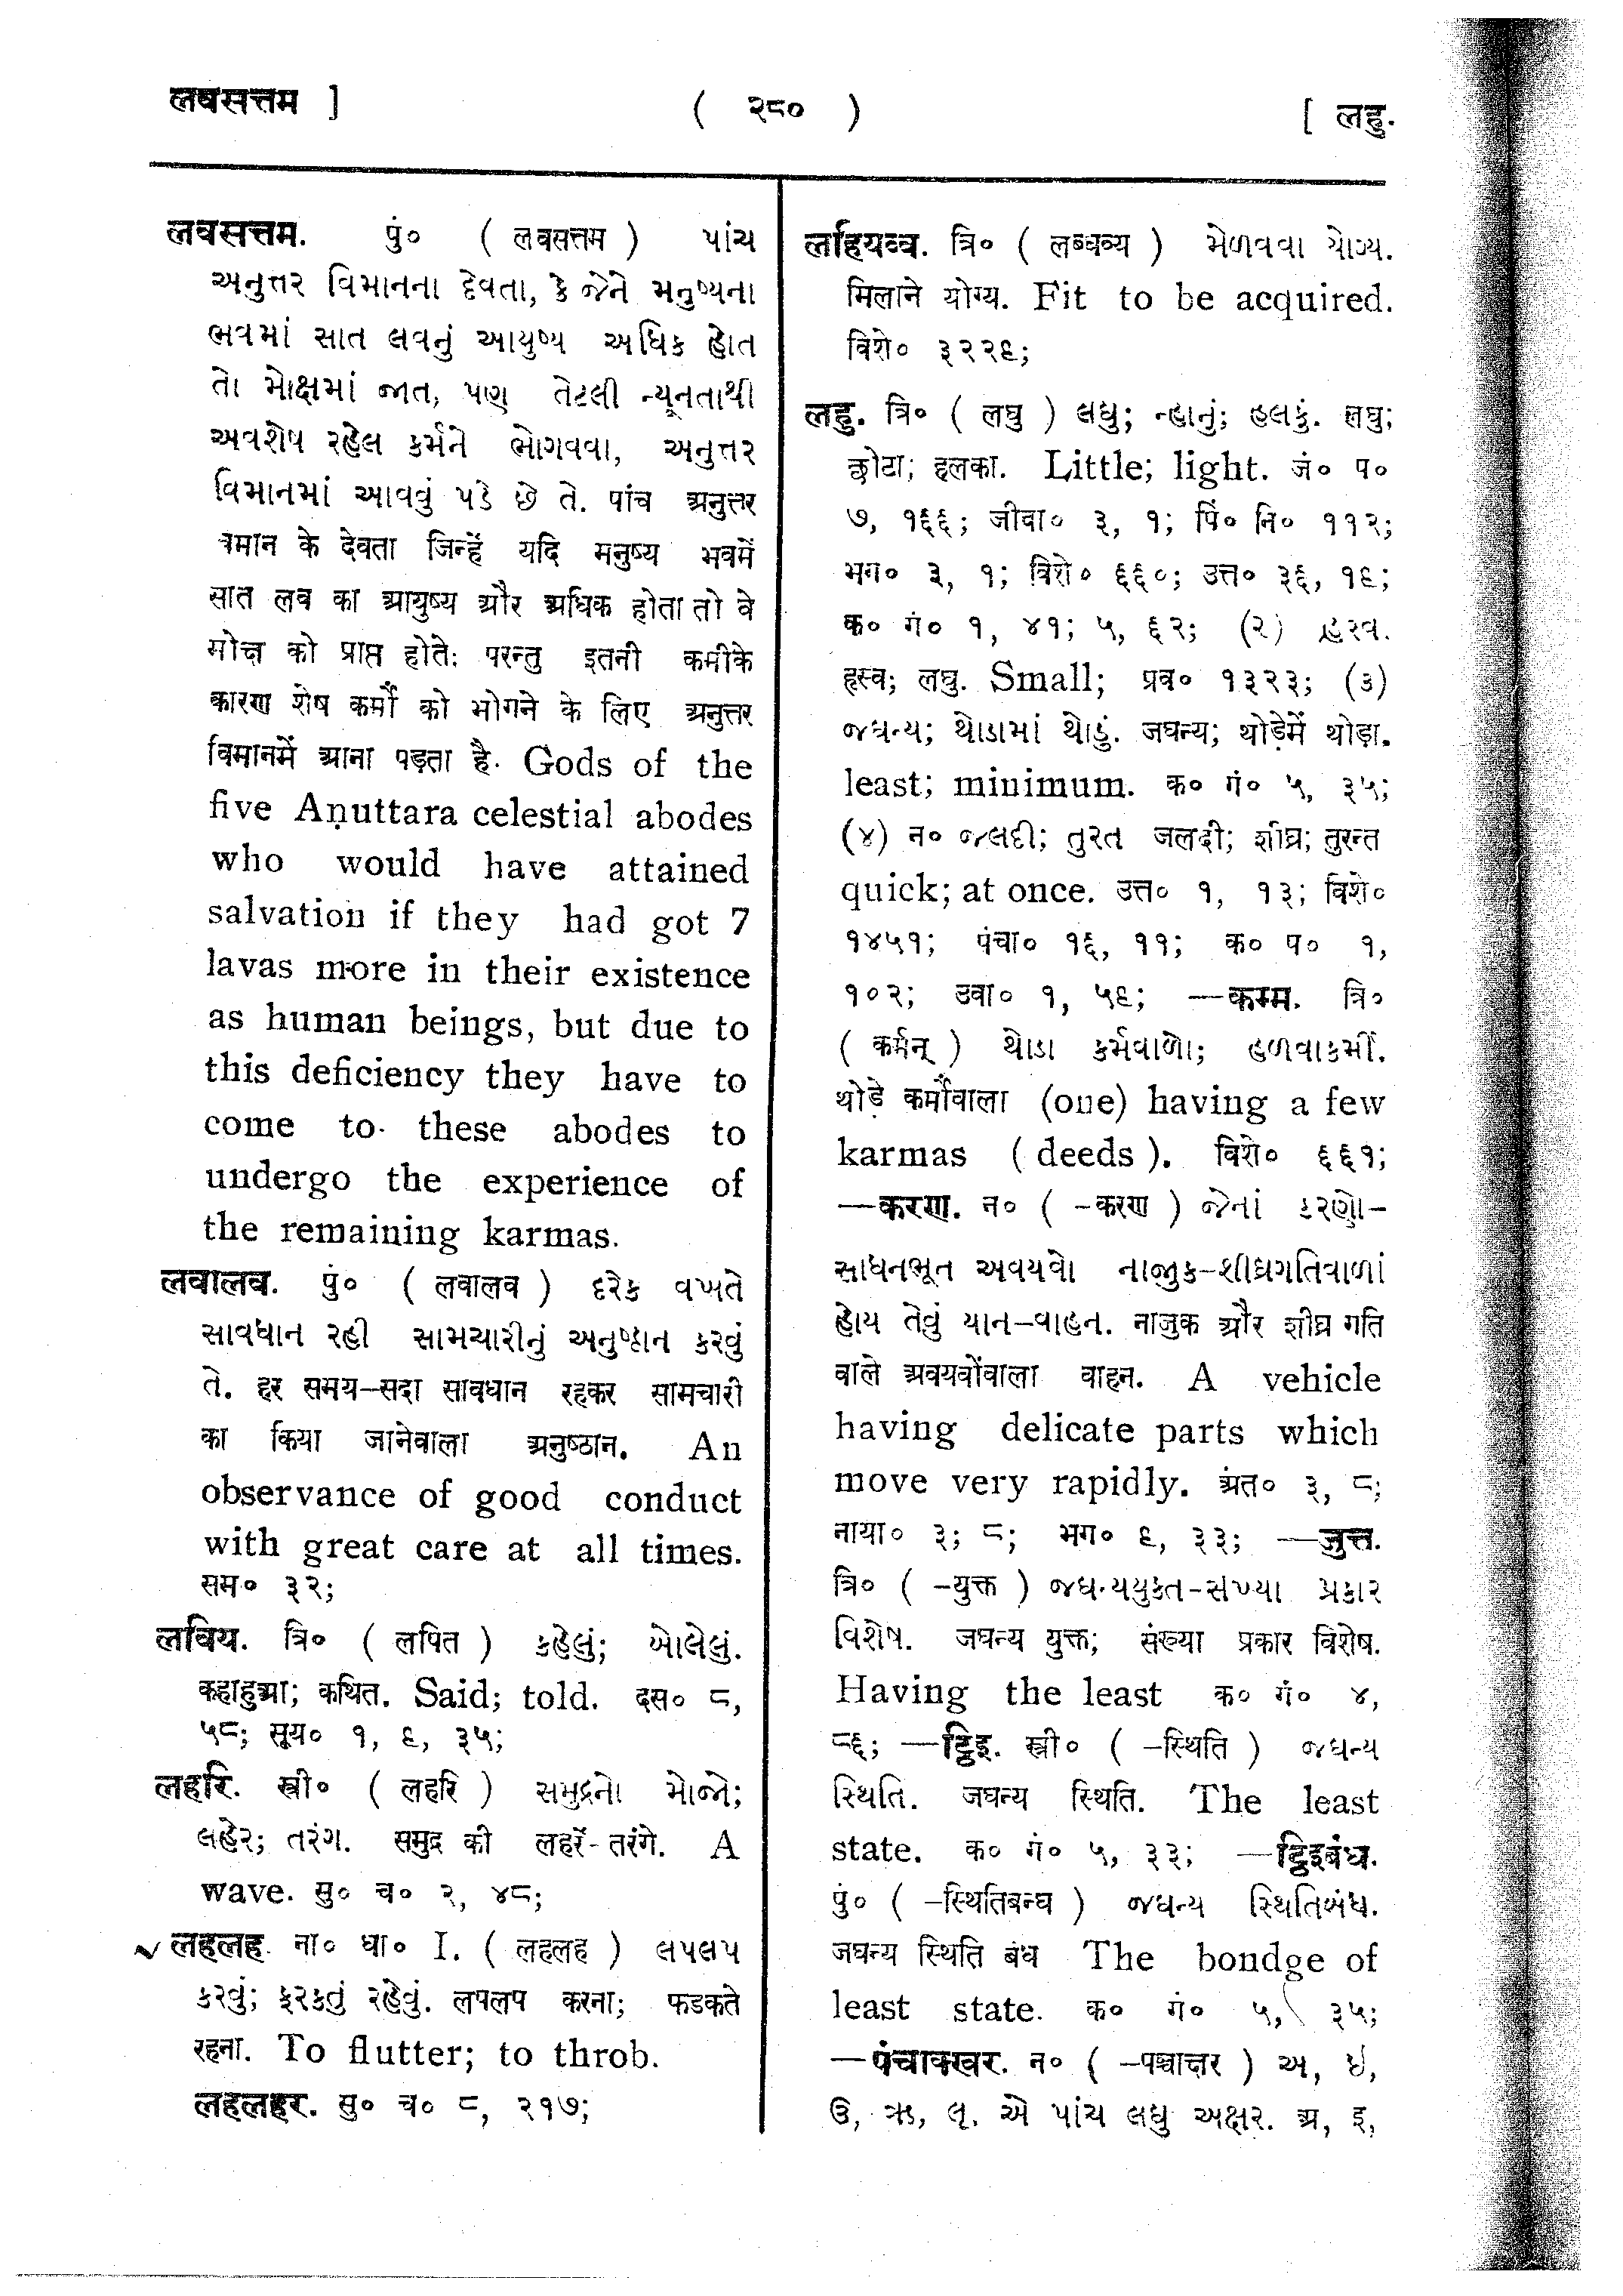 लवसत्तम ]
( २८० )
[ लहु.
लवसत्तम. पुं० ( लवसत्तम ) પાંચ
અનુત્તર વિમાનના દેવતા, કે જેને મનુષ્યના
ભવમાં સાત લવનું આયુષ્ય અધિક હોત
તો મોક્ષમાં જાત, પણ તેટલી ન્યૂનતાથી
અવશેષ રહેલ કર્મને ભોગવવા, અનુત્તર
વિમાનમાં આવવું પડે છે તે. पांच अनुत्तर
वमान के देवता जिन्हें यदि मनुष्य भवमें
सात लव का आयुष्य और अधिक होता तो वे
मोक्ष को प्राप्त होते; परन्तु इतनी कमीके
कारण शेष कर्मों को भोगने के लिए अनुत्तर
विमानमें आना पड़ता है. Gods of the
five Aṇuttara celestial abodes
who would have attained
salvation if they had got 7
lavas more in their existence
as human beings, but due to
this deficiency they have to
come to these abodes to
undergo the experience of
the remaining karmas.
लवालव. पुं० ( लवालव ) દરેક વખતે
સાવધાન રહી સામચારીનું અનુષ્ઠાન કરવું
તે. हर समय–सदा सावधान रहकर सामचारी
का किया जानेवाला अनुष्ठान. An
observance of good conduct
with great care at all times.
सम० ३२;
लविय. त्रि० ( लपित ) કહેલું; બોલેલું.
कहाहुआ; कथित. Said; told. दस० ८,
५८; सूय० १, ६, ३५;
लहरि. स्त्री० ( लहरि ) સમુદ્રનો મોજો;
લહેર; તરંગ. समुद्र की लहरें-तरंगे. A
wave. सु० च० २, ४८;
लहलह. ना० धा० I. ( लहलह ) લપલપ
કરવું; ફરકતું રહેવું. लपलप करना; फडकते
रहना. To flutter; to throb.
लहलहर. सु० च० ८, २१७;
लहियव्व. त्रि० ( लब्धव्य ) મેળવવા યોગ્ય.
मिलाने योग्य. Fit to be acquired.
विशे० ३२२६;
लहु. त्रि० ( लघु ) લઘુ; ન્હાનું; હલકું. लघु;
छोटा; हलका. Little; light. जं० प०
७, १६६; जीवा० ३, १; पिं० नि० ११२;
भग० ३, १; विशे० ६६०; उत्त० ३६, १६;
क० गं० १, ४१; ५, ६२; (२) હ્રસ્વ.
ह्रस्व; लघु. Small; प्रव० १३२३; (३)
જઘન્ય; થોડામાં થોડું. जघन्य; थोड़ेमें थोड़ा.
least; minimum. क० गं० ५, ३५;
(४) न० જલદી; તુરત जलदी; शीघ्र; तुरन्त
quick; at once. उत्त० १, १३; विशे०
१४५१; पंचा० १६, ११; क० प० १,
१०२; उवा० १, ५६; —कम्म. त्रि०
( कर्मन् ) થોડા કર્મવાળો; હળવાકર્મી.
थोडे कर्मोवाला (one) having a few
karmas ( deeds ). विशे० ६६१;
—करण. न० ( -करण ) જેનાં કરણો–
સાધનભૂત અવયવો નાજુક–શીઘ્રગતિવાળાં
હોય તેવું યાન–વાહન. नाजुक और शीघ्र गति
वाले अवयवोंवाला वाहन. A vehicle
having delicate parts which
move very rapidly. अंत० ३, ८;
नाया० ३; ८; भग० ६, ३३; —जुत्त.
त्रि० ( -युक्त ) જઘન્યયુક્ત-સંખ્યા પ્રકાર
વિશેષ. जघन्य युक्त; संख्या प्रकार विशेष.
Having the least क० गं० ४,
८६; —ट्ठिइ. स्त्री० ( –स्थिति ) જઘન્ય
સ્થિતિ. जघन्य स्थिति. The least
state. क० गं० ५, ३३; —ट्ठिइबंध.
पुं० ( –स्थितिबन्ध ) જઘન્ય સ્થિતિબંધ.
जघन्य स्थिति बंध The bondge of
least state. क० गं० ५, ३५;
—पंचाक्खर. न० ( –पञ्चाक्षर ) અ, ઇ,
ઉ, ઋ, લૃ. એ પાંચ લઘુ અક્ષર. अ, इ,